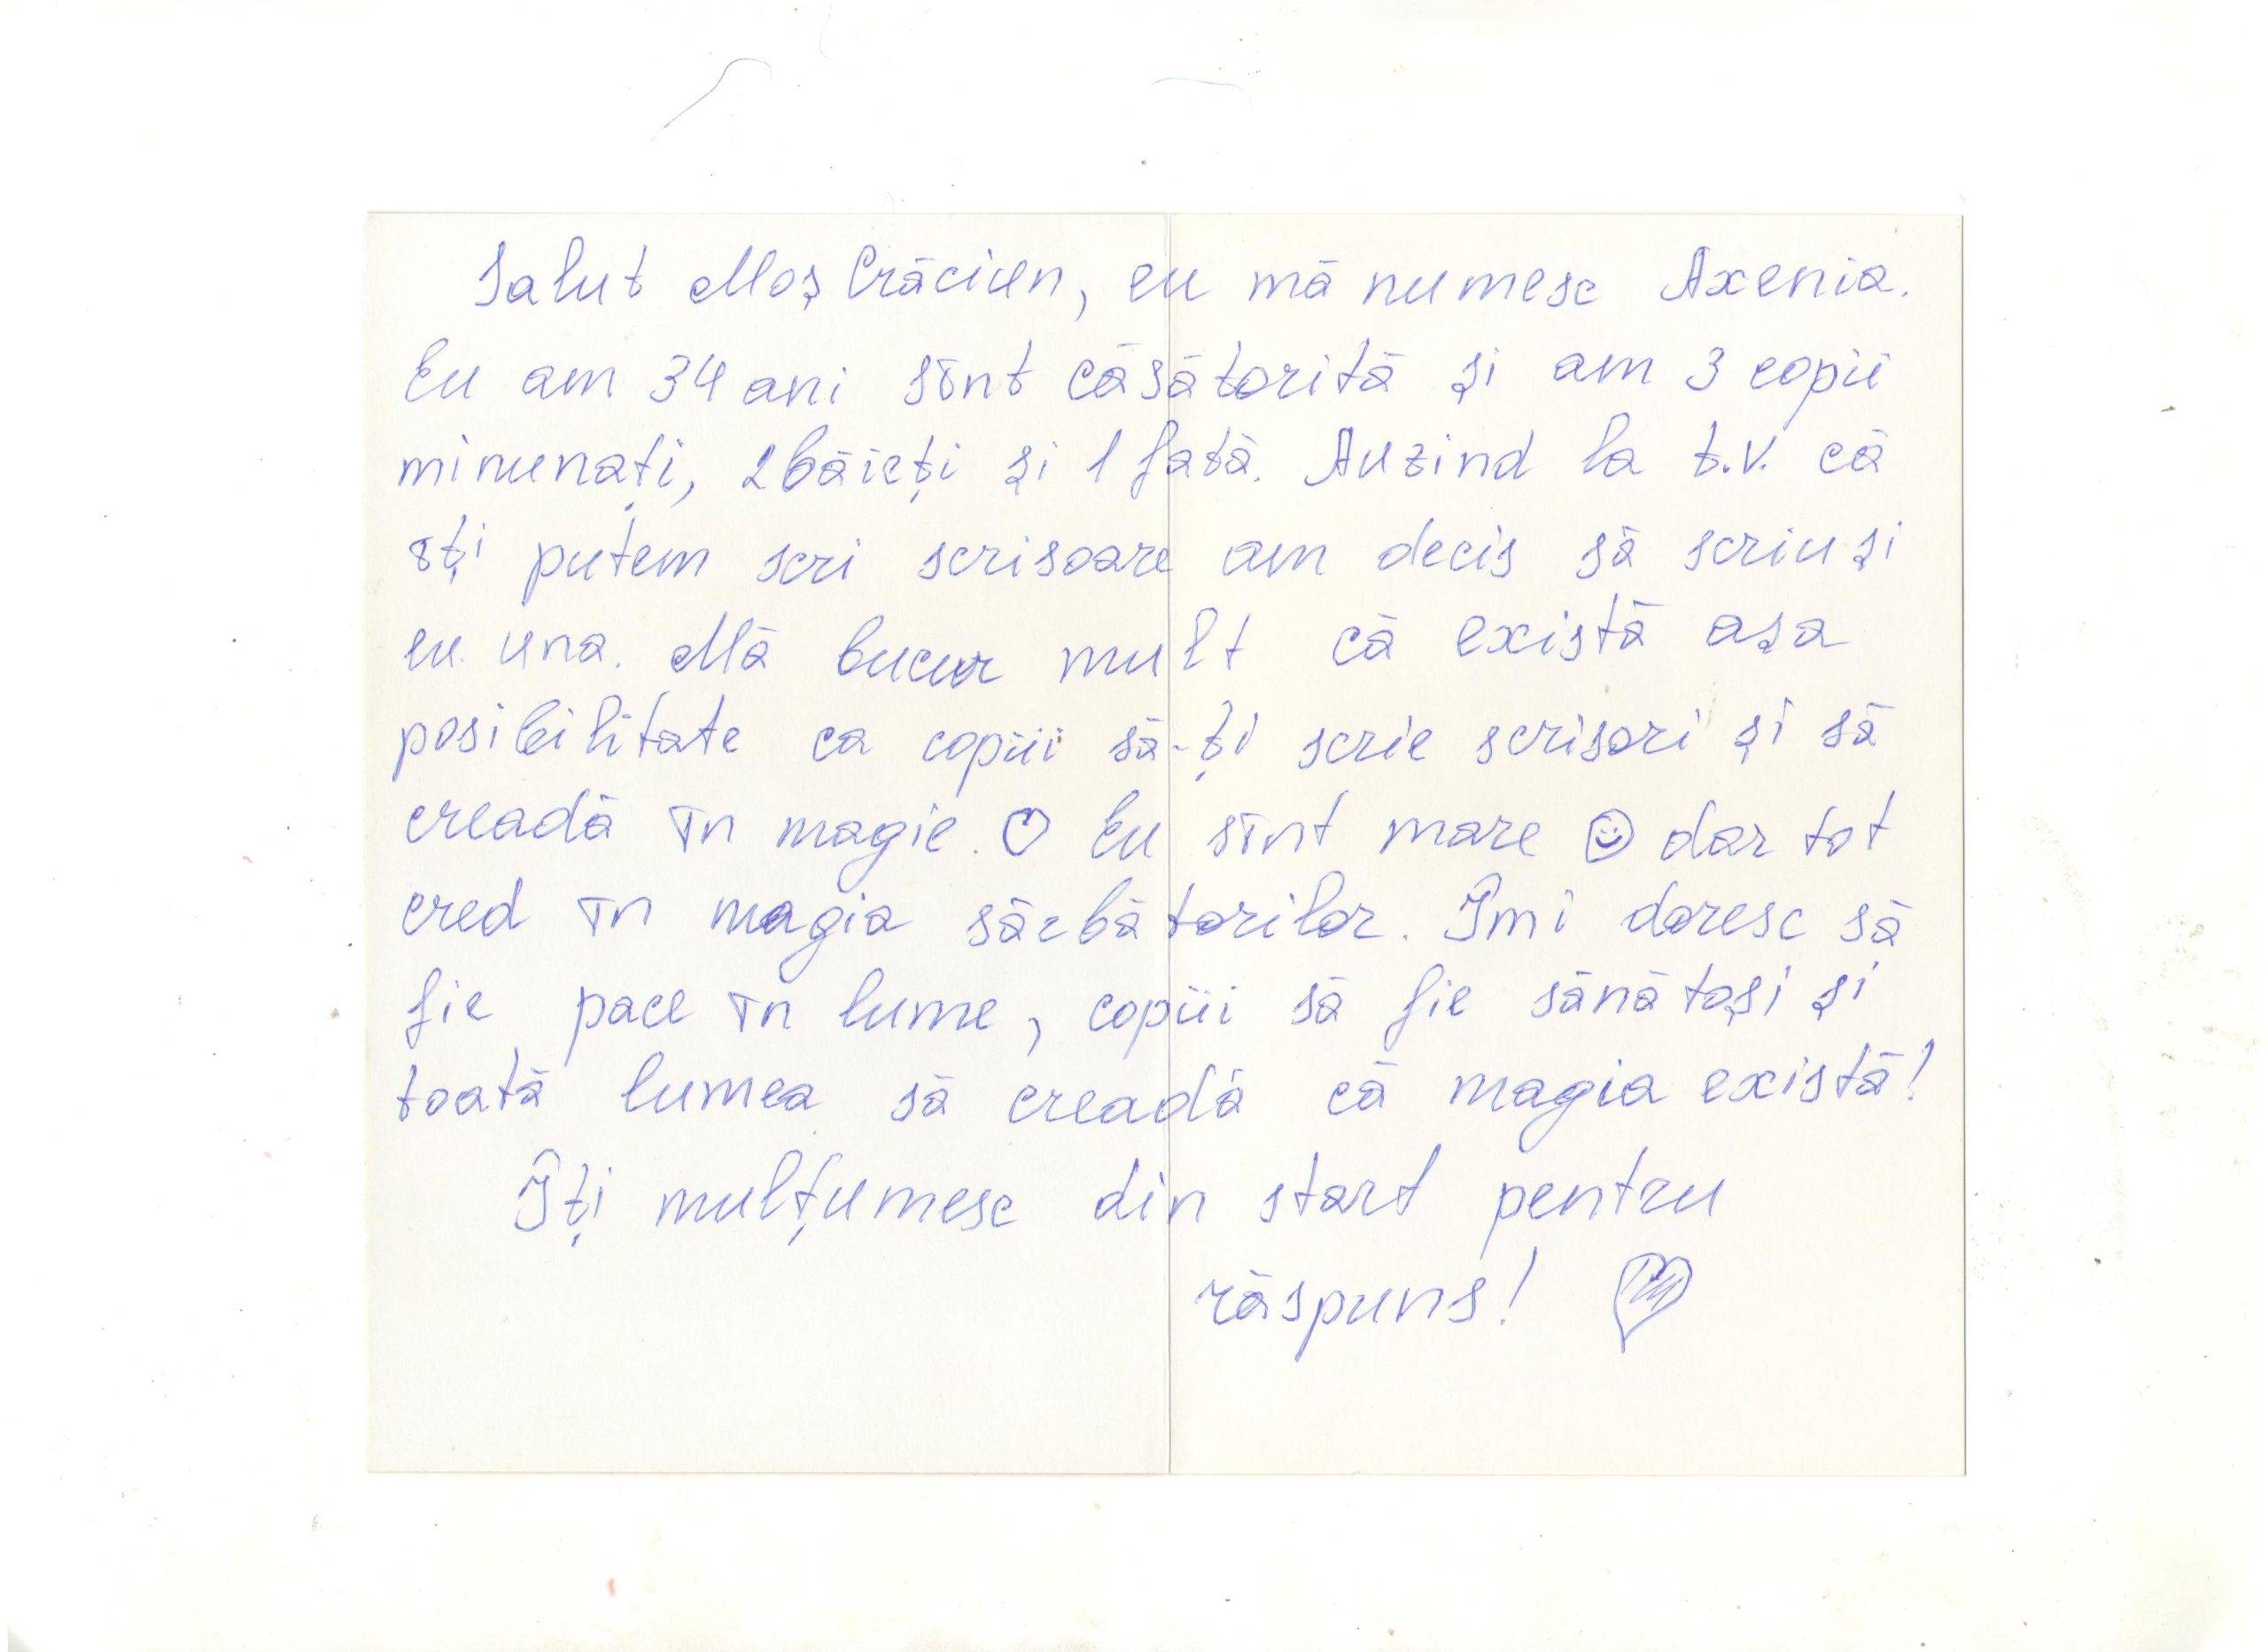 Salut Moș Crăciun, eu mă numesc Axenia.
Eu am 34 ani sînt căsătorită și am 3 copii
minunați, 2 băieți și 1 fată. Auzind la t.v. că
îți putem scri scrisoare am decis să scriu și
eu una. Mă bucur mult că există așa
posibilitate ca copiii să-ți scrie scrisori și să
creadă în magie. ♡ Eu sînt mare ☺ dar tot
cred în magia sărbătorilor. Îmi doresc să
fie pace în lume, copiii să fie sănătoși și
toată lumea să creadă că magia există!
Îți mulțumesc din start pentru
răspuns! ♡